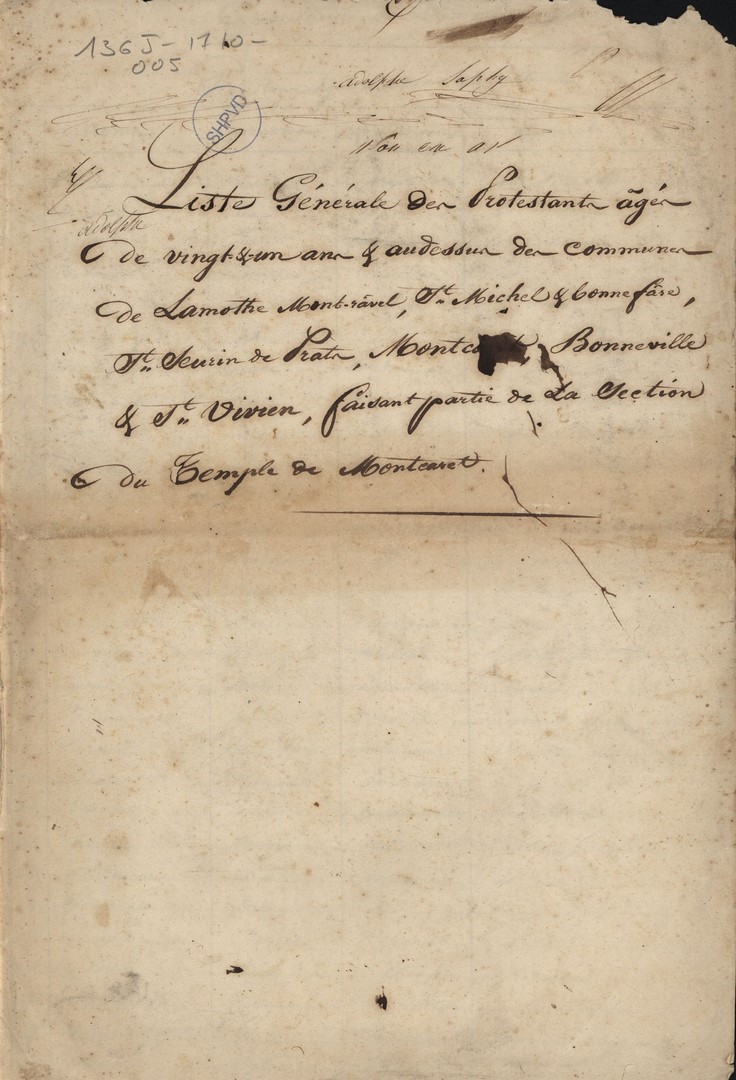 136 J - 17 10 -
005
Adolphe Saphy
SHPVD
Liste Générale des Protestants âgés
Adolphe
de vingt-&-un ans & audessus des communes
de Lamothe Mont-râvel, St. Michel & bonnefâre,
St. Seurin de Prats, Montca Bonneville
& St. Vivien, faisant partie de La Section
du Temple de Montcaret.